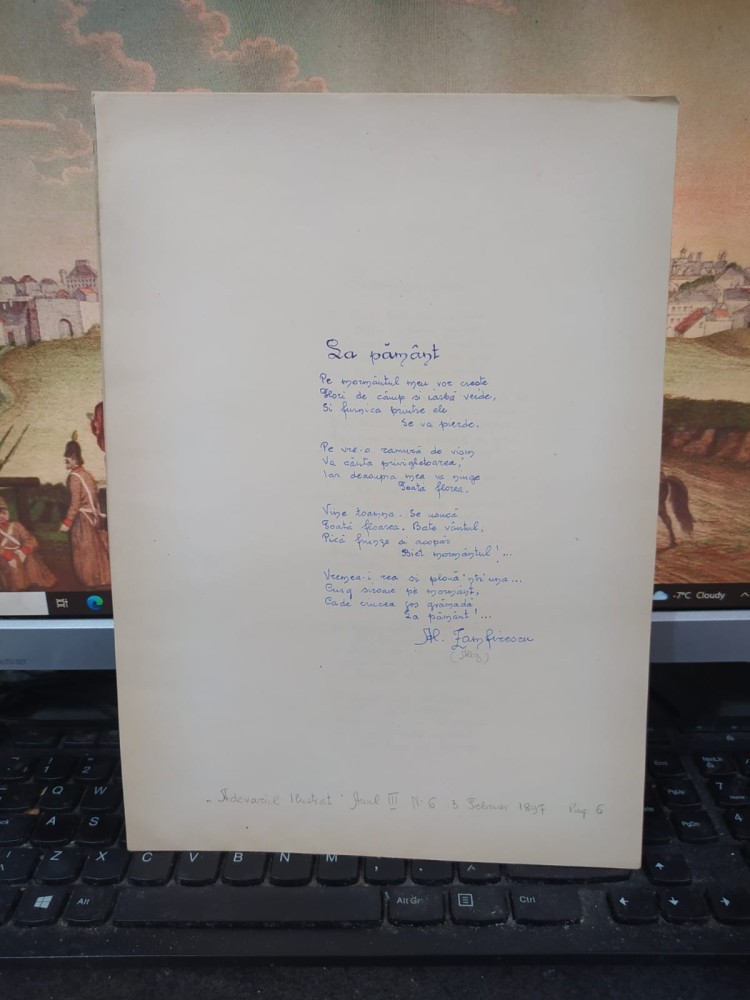 La pământ
Pe mormântul meu vor crește
Flori de câmp si iarbă verde,
Si furnica printre ele
Se va pierde.
Pe vre-o ramură de vișin
Va cânta privighetoarea,
Iar deasupra mea va ninge
Toată florea.
Vine toamna. Se usucă
Toată floarea. Bate vântul,
Pică frunze să acopăr
Biet mormântul!...
Vremea-i rea si plouă 'ntr'una...
Curg siroaie pe mormânt,
Cade crucea jos grămadă
La pământ!...
Al. Zamfirescu
„Adevarul Ilustrat" Anul III N. 6 3 Februar 1897 Pag 6
-7°C Cloudy
1 2
Q W
A S
Z X C V B N M
Alt Alt Gr Ctrl
7
4
1